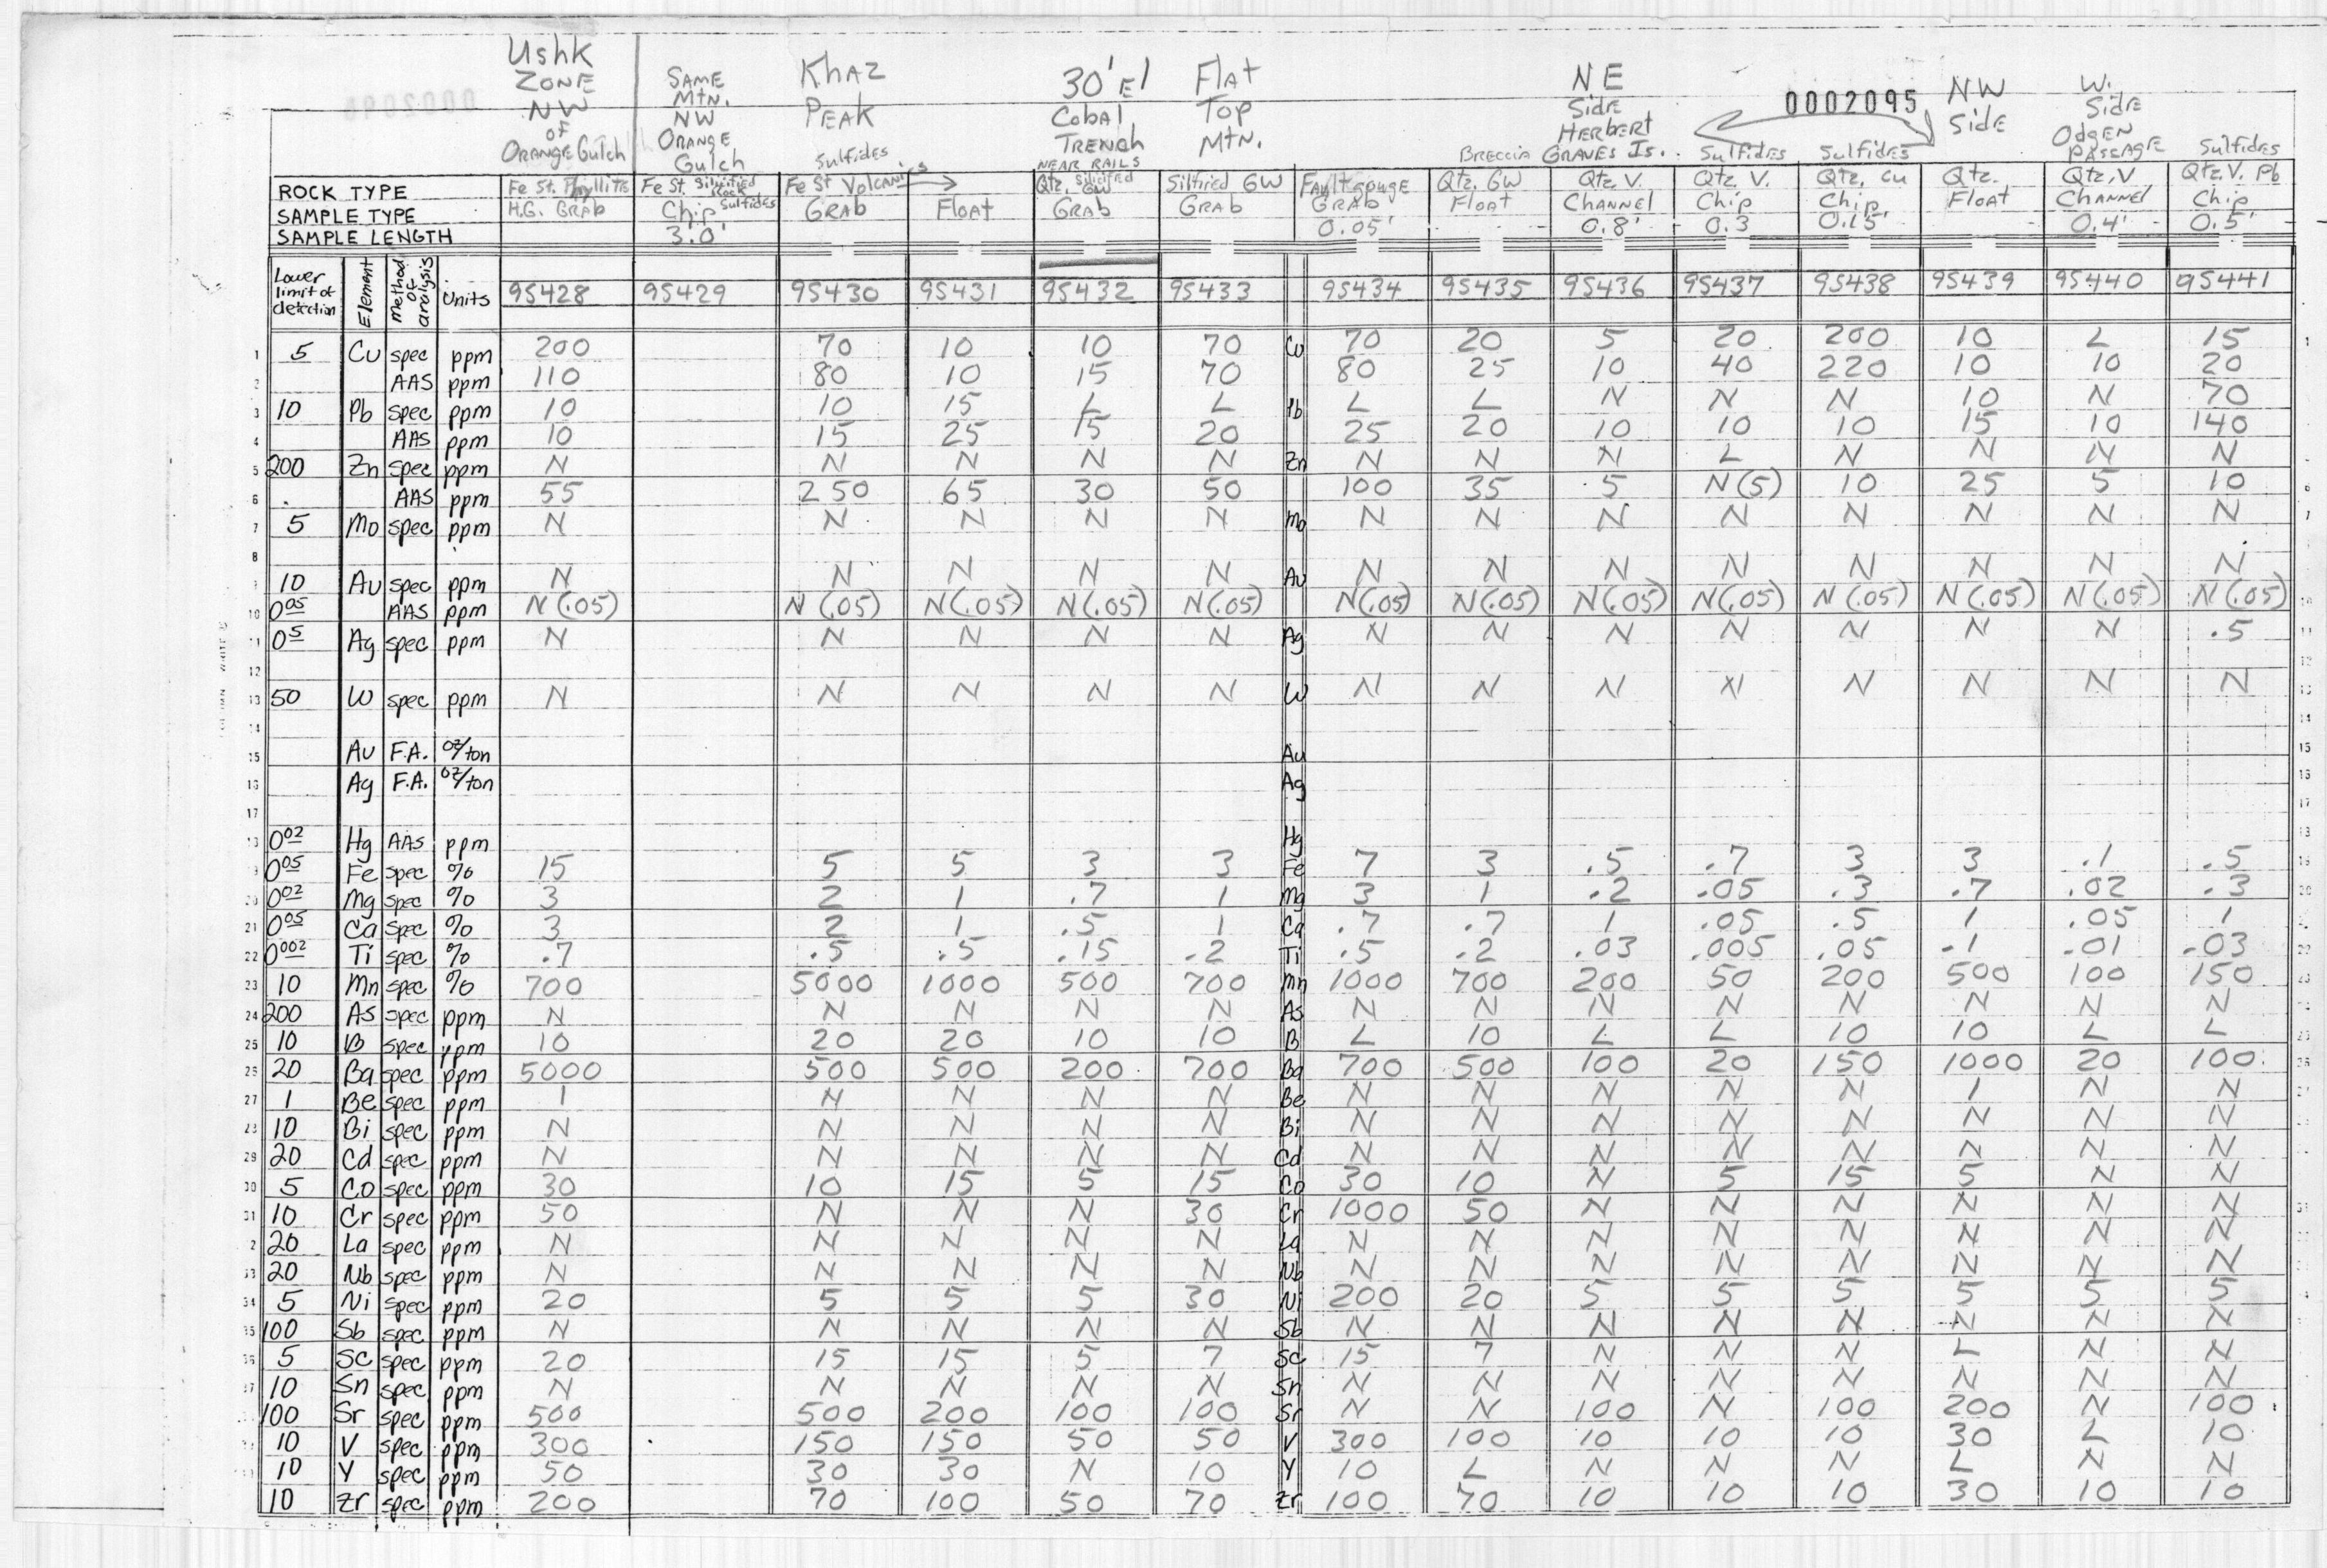 Ushk ZONE NW OF ORANGE Gulch
SAME Mtn. NW ORANGE Gulch
KhAZ PEAK
Sulfides
30' El Cobal TRENCH NEAR RAILS
FlAt Top Mtn.
BRECCIA
N E Side HERbERt GRAVES Is.
0002095
Sulfides
Sulfides
NW Side
W. Side OdgEN PASSAGE
Sulfides
ROCK TYPE Fe St. Phyllite Fe St. Silicified Rock Sulfides Fe St Volcanics Qtz. Silicified GW Silfired GW Fault gouge Qtz. GW Qtz. V. Qtz. V. Qtz. Cu Qtz. Qtz. V Qtz. V. Pb
SAMPLE TYPE H.G. GRAb Chip GRAb FloAt GRAb GRAb GRAb FloAt CHANNEl Chip Chip FloAt CHANNEl Chip
SAMPLE LENGTH 3.0' 0.05' 0.8' 0.3 0.15' 0.4' 0.5'
Lower limit of detection Element Method of analysis Units 95428 95429 95430 95431 95432 95433 95434 95435 95436 95437 95438 95439 95440 95441
1 5 Cu spec ppm 200 70 10 10 70 Cu 70 20 5 20 200 10 L 15
2 AAS ppm 110 80 10 15 70 80 25 10 40 220 10 10 20
3 10 Pb spec ppm 10 10 15 L L Pb L L N N N 10 N 70
4 AAS ppm 10 15 25 15 20 25 20 10 10 10 15 10 140
5 200 Zn spec ppm N N N N N Zn N N N L N N N N
6 AAS ppm 55 250 65 30 50 100 35 5 N(5) 10 25 5 10
7 5 Mo spec ppm N N N N N Mo N N N N N N N N
8
10 Au spec ppm N N N N N Au N N N N N N N N
10 0.05 AAS ppm N(.05) N(.05) N(.05) N(.05) N(.05) N(.05) N(.05) N(.05) N(.05) N(.05) N(.05) N(.05) N(.05)
11 0.5 Ag spec ppm N N N N N Ag N N N N N N N .5
12
13 50 W spec ppm N N N N N W N N N N N N N N
14
15 Au F.A. oz/ton Au
16 Ag F.A. oz/ton Ag
17
0.02 Hg AAS ppm Hg
0.05 Fe spec % 15 5 5 3 3 Fe 7 3 .5 .7 3 3 .1 .5
20 0.02 Mg spec % 3 2 1 .7 1 Mg 3 1 .2 .05 .3 .7 .02 .3
21 0.05 Ca spec % 3 2 1 .5 1 Ca .7 .7 1 .05 .5 1 .05 1
22 0.002 Ti spec % .7 .5 .5 .15 .2 Ti .5 .2 .03 .005 .05 .1 .01 .03
23 10 Mn spec % 700 5000 1000 500 700 Mn 1000 700 200 50 200 500 100 150
24 200 As spec ppm N N N N N As N N N N N N N N
25 10 B spec ppm 10 20 20 10 10 B L 10 L L 10 10 L L
20 Ba spec ppm 5000 500 500 200 700 Ba 700 500 100 20 150 1000 20 100
27 1 Be spec ppm 1 N N N N Be N N N N N 1 N N
10 Bi spec ppm N N N N N Bi N N N N N N N N
29 20 Cd spec ppm N N N N N Cd N N N N N N N N
30 5 Co spec ppm 30 10 15 5 15 Co 30 10 N 5 15 5 N N
31 10 Cr spec ppm 50 N N N 30 Cr 1000 50 N N N N N N
20 La spec ppm N N N N N La N N N N N N N N
33 20 Nb spec ppm N N N N N Nb N N N N N N N N
34 5 Ni spec ppm 20 5 5 5 30 Ni 200 20 5 5 5 5 5 5
35 100 Sb spec ppm N N N N N Sb N N N N N N N N
36 5 Sc spec ppm 20 15 15 5 7 Sc 15 7 N N N L N N
10 Sn spec ppm N N N N N Sn N N N N N N N N
100 Sr spec ppm 500 500 200 100 100 Sr N N 100 N 100 200 N 100
10 V spec ppm 300 150 150 50 50 V 300 100 10 10 10 30 L 10
10 Y spec ppm 50 30 30 N 10 Y 10 L N N N L N N
10 Zr spec ppm 200 70 100 50 70 Zr 100 70 10 10 10 30 10 10